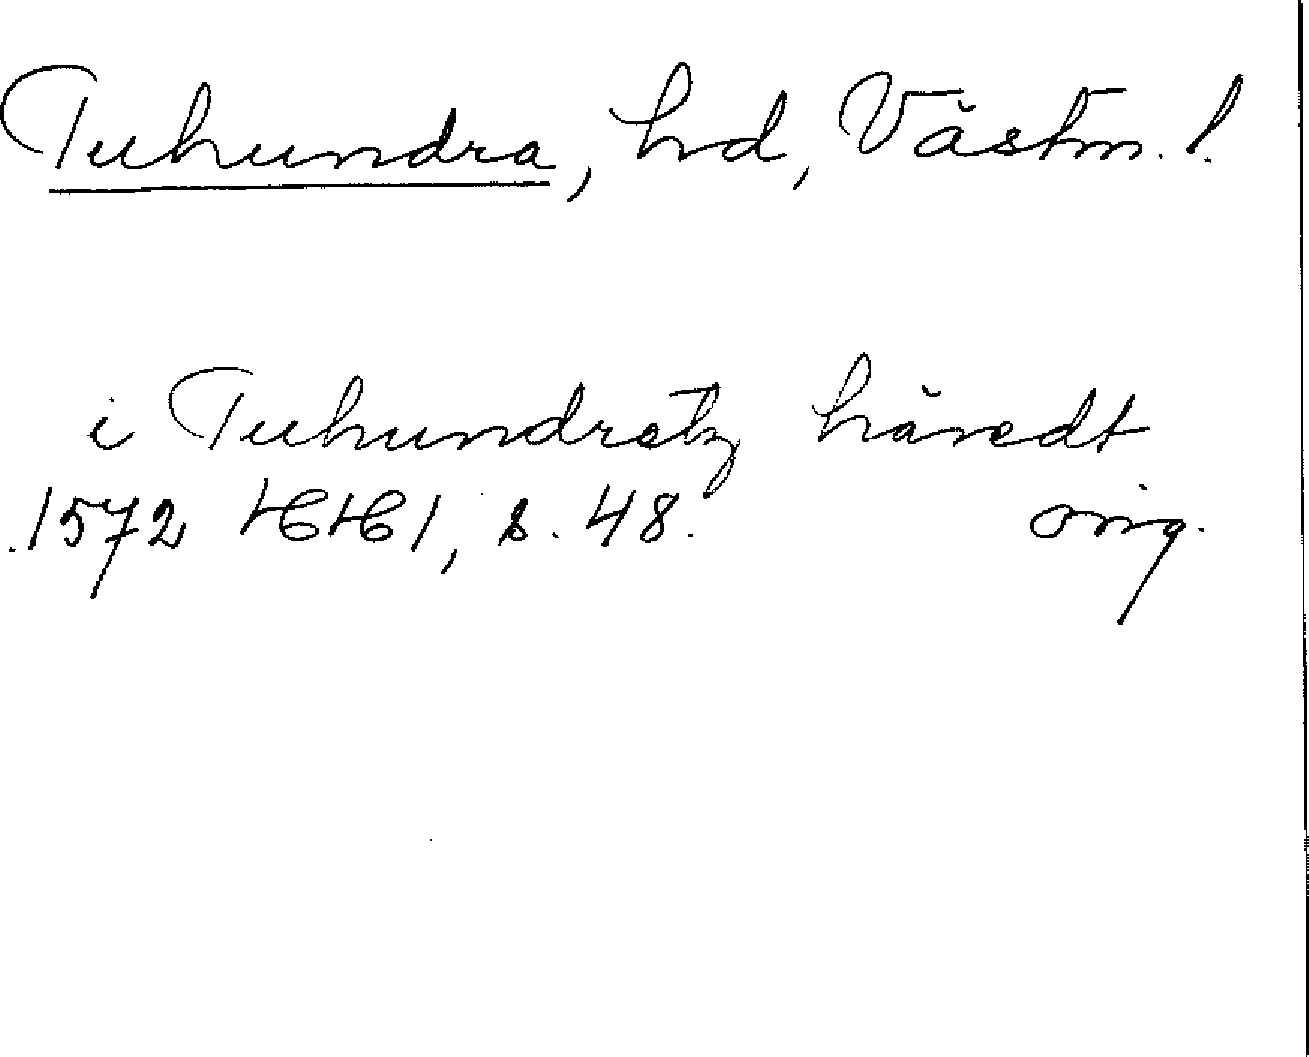 Tuhundra, hd, Västm. l.
i Tuhundretz häredt
1572 HH 1, s. 48. orig.